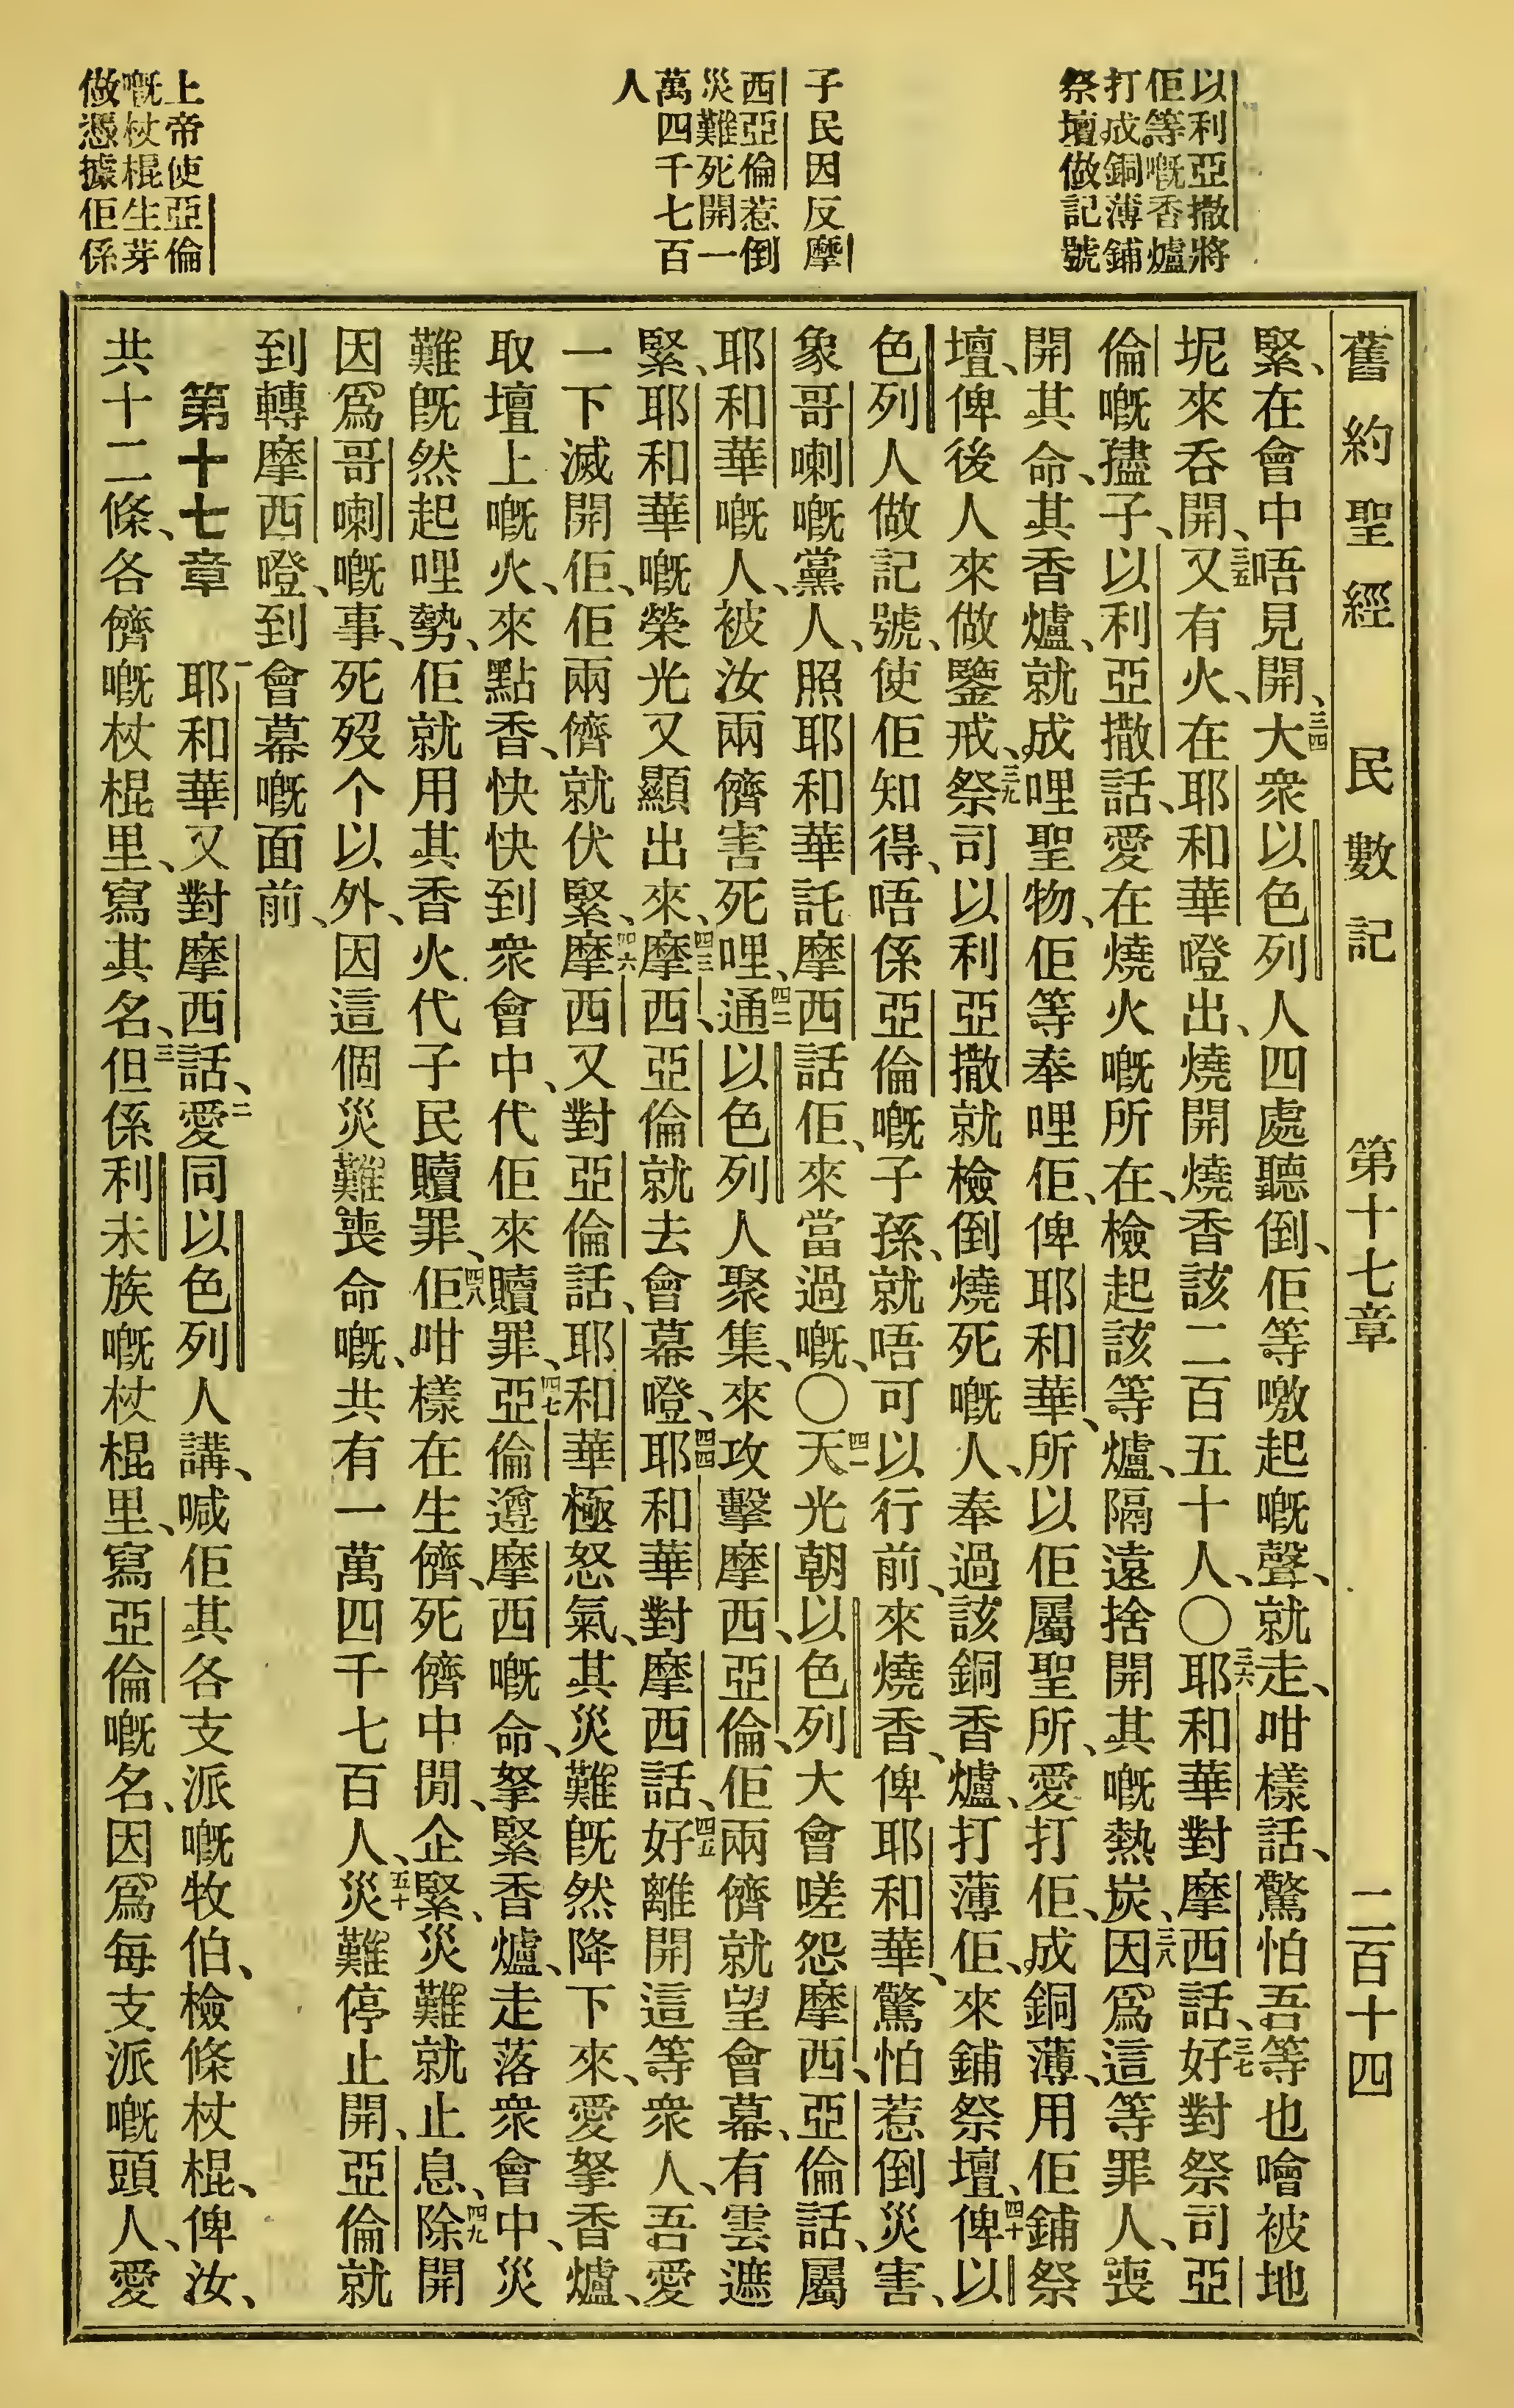 以利亞撒將
佢等嘅香爐
打成銅薄鋪
祭壇做記號
子民因反摩
西亞倫惹倒
災難死開一
萬四千七百
人
上帝使亞倫
嘅杖棍生芽
做憑據佢係
舊約聖經　民數記　第十七章　二百十四
緊、在會中唔見開、三四大衆以色列人四處聽倒、佢等噭起嘅聲、就走、咁樣話、驚怕吾等也噲被地
坭來吞開、三五又有火、在耶和華嶝出、燒開燒香該二百五十人、〇三六耶和華對摩西話、三七好對祭司亞
倫嘅𡥧子、以利亞撒話、愛在燒火嘅所在、檢起該等爐、隔遠捨開其嘅熱炭、三八因爲這等罪人、喪
開其命、其香爐、就成哩聖物、佢等奉哩佢、俾耶和華、所以佢屬聖所、愛打佢、成銅薄、用佢鋪祭
壇、俾後人來做鑒戒、三九祭司以利亞撒就檢倒燒死嘅人、奉過該銅香爐、打薄佢、來鋪祭壇、四十俾以
色列人做記號、使佢知得、唔係亞倫嘅子孫、就唔可以行前、來燒香、俾耶和華、驚怕惹倒災害、
象哥喇嘅黨人、照耶和華託摩西話佢、來當過嘅、〇四一天光朝以色列大會嗟怨摩西、亞倫話、屬
耶和華嘅人、被汝兩儕害死哩、四二通以色列人聚集、來攻擊摩西、亞倫、佢兩儕就望會幕、有雲遮
緊、耶和華嘅榮光又顯出來、四三摩西、亞倫就去會幕嶝、四四耶和華對摩西話、四五好離開這等衆人、吾愛
一下滅開佢、佢兩儕就伏緊、四六摩西又對亞倫話、耶和華極怒氣、其災難旣然降下來、愛拏香爐、
取壇上嘅火、來點香、快快到衆會中、代佢來贖罪、四七亞倫遵摩西嘅命、拏緊香爐、走落衆會中、災
難旣然起哩勢、佢就用其香火代子民贖罪、四八佢咁樣在生儕、死儕中閒、企緊、災難就止息、四九除開
因爲哥喇嘅事、死歿个以外、因這個災難喪命嘅、共有一萬四千七百人、五十災難停止開、亞倫就
到轉摩西嶝、到會幕嘅面前、
第十七章　一耶和華又對摩西話、二愛同以色列人講、喊佢其各支派嘅牧伯、檢條杖棍、俾汝、
共十二條、各儕嘅杖棍里、寫其名、三但係利未族嘅杖棍里、寫亞倫嘅名、因爲每支派嘅頭人、愛